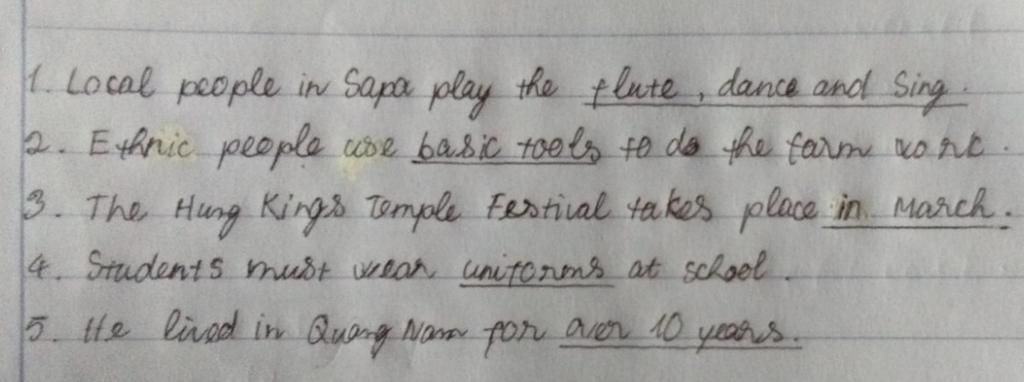 1. Local people in Sapa play the flute, dance and Sing.
2. Ethnic people use basic tools to do the farm work.
3. The Hung Kings Temple Festival takes place in March.
4. Students must wear uniforms at school.
5. He lived in Quang Nam for over 10 years.